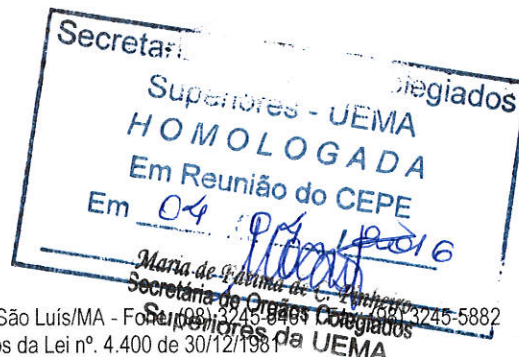 Secretar olegiados
Superiores - UEMA
HOMOLOGADA
Em Reunião do CEPE
Em 04 2016
Maria de Fátima de C. Pinheiro
Secretária de Órgãos Colegiados
Superiores da UEMA
São Luís/MA - Fone: (98) 3245-5882
os da Lei nº. 4.400 de 30/12/1981